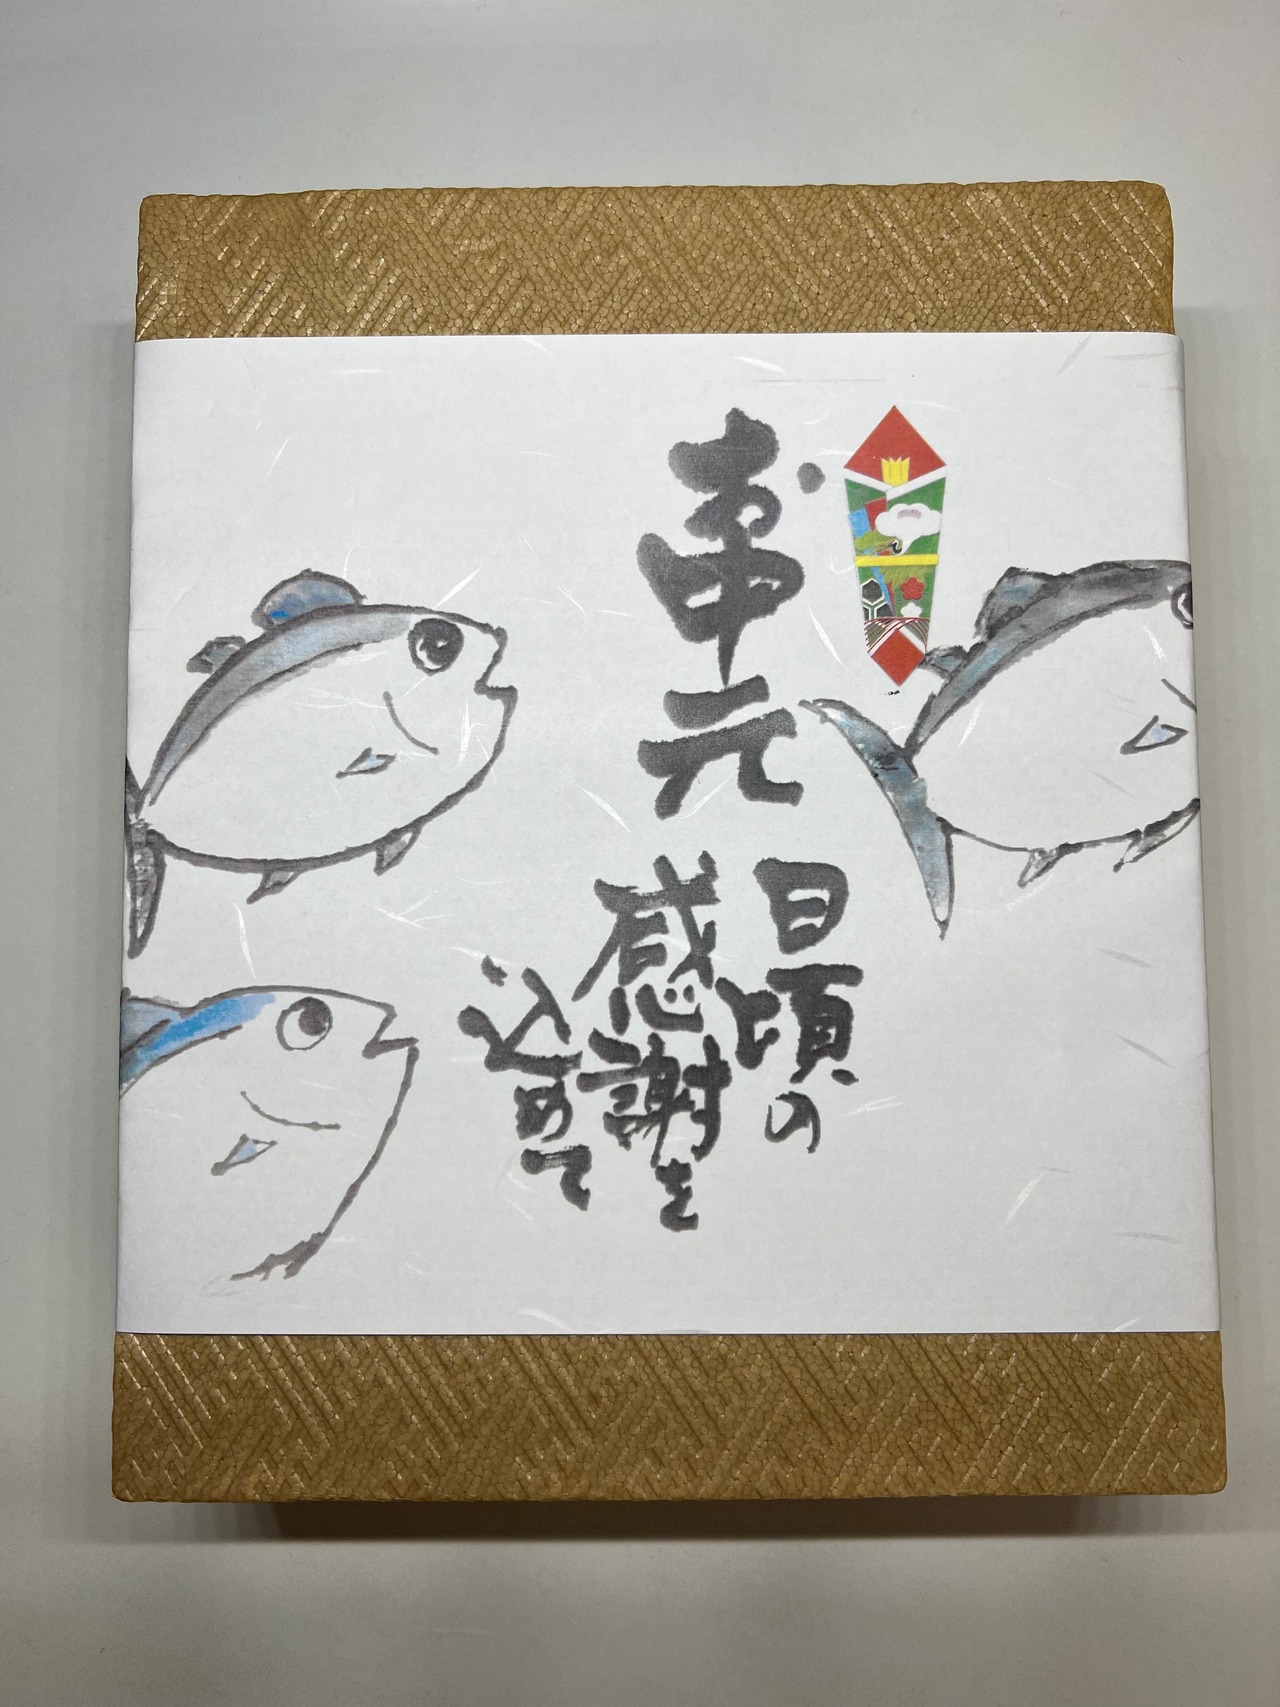 お中元
日頃の
感謝を
込めて